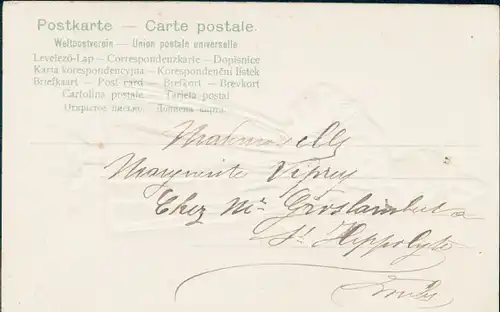 Postkarte — Carte postale.
Weltpostverein — Union postale universelle
Levelező-Lap — Correspondenzkarte — Dopisnice
Karta korespondencyjna — Korespondenční lístek
Briefkaart — Post card — Brefkort — Brevkort
Cartolina postale — Tarjeta postal
Открытое письмо — Дописна карта
Mademoiselle
Marguerite Viprey
Chez Mr Groslambert à
St Hippolyte
Doubs